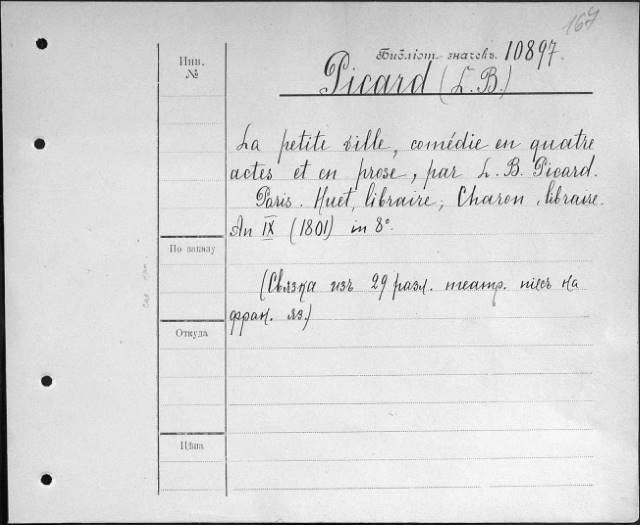 167
Библіот. значекъ 10897.
Picard (L. B.)
Инв.
№
La petite ville, comédie en quatre
actes et en prose, par L. B. Picard.
Paris. Huet, libraire; Charon, libraire.
An IX (1801) in 8°.
По заказу
(Связка изъ 29 разл. театр. піесъ на
франц. яз.)
Откуда
Цѣна